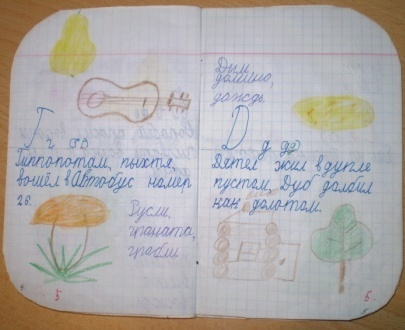 Г г
Гиппопотам, пыхтя,
вошёл в Автобус номер
26.
Гусли,
граната,
грабли
5
Дым,
домино,
дождь.
Д д
Дятел жил в дупле
пустом, Дуб долбил
как долотом.
6